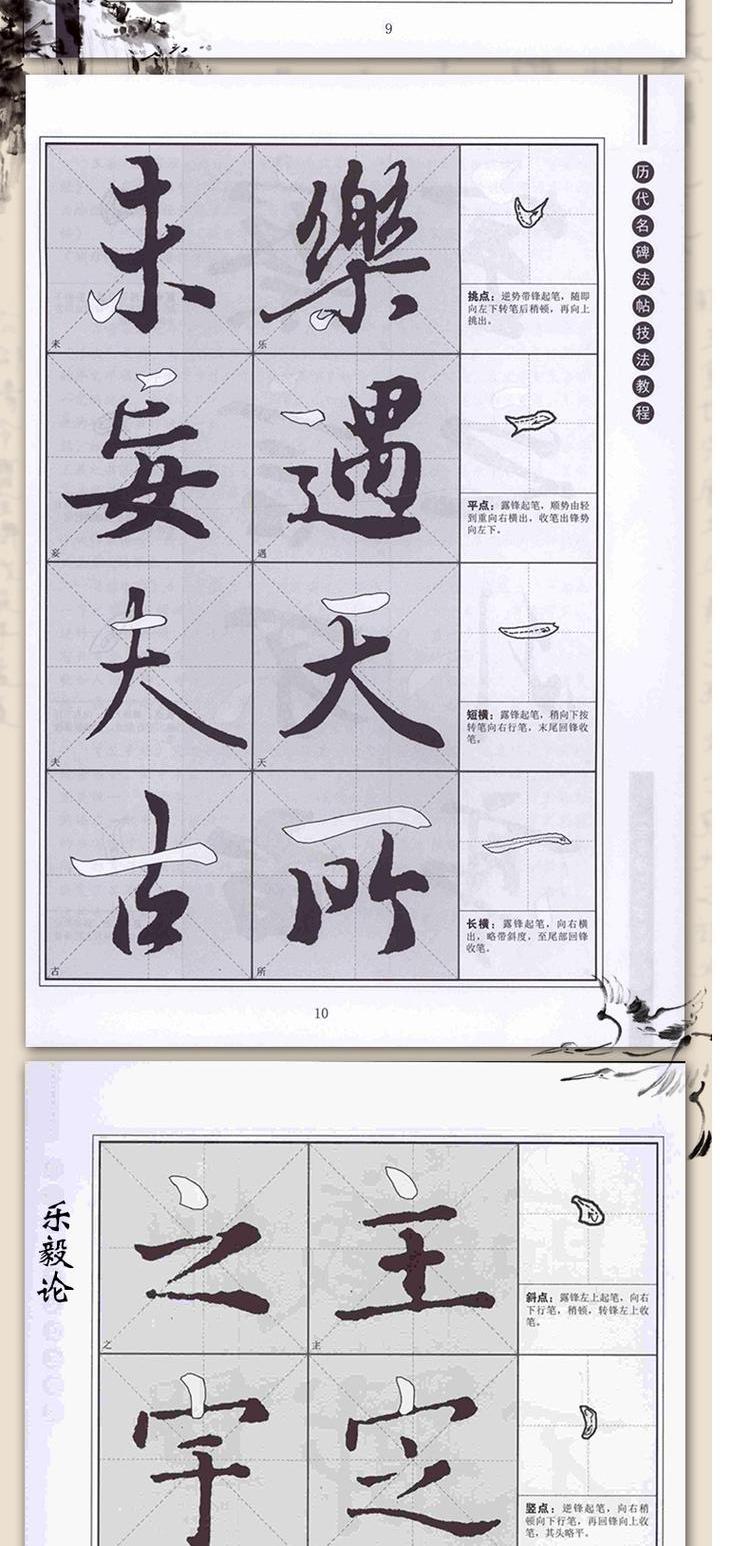 9
历代名碑法帖技法教程
未 樂
未 乐
挑点：逆势带锋起笔，随即
向左下转笔后稍顿，再向上
挑出。
妄 遇
妄 遇
平点：露锋起笔，顺势由轻
到重向右横出，收笔出锋势
向左下。
夫 天
夫 天
短横：露锋起笔，稍向下按
转笔向右行笔，末尾回锋收
笔。
古 所
古 所
长横：露锋起笔，向右横
出，略带斜度，至尾部回锋
收笔。
10
乐毅论
之 主
之 主
斜点：露锋左上起笔，向右
下行笔，稍顿，转锋左上收
笔。
宇 定
竖点：逆锋起笔，向右稍
顿向下行笔，再回锋向上收
笔，其头略平。